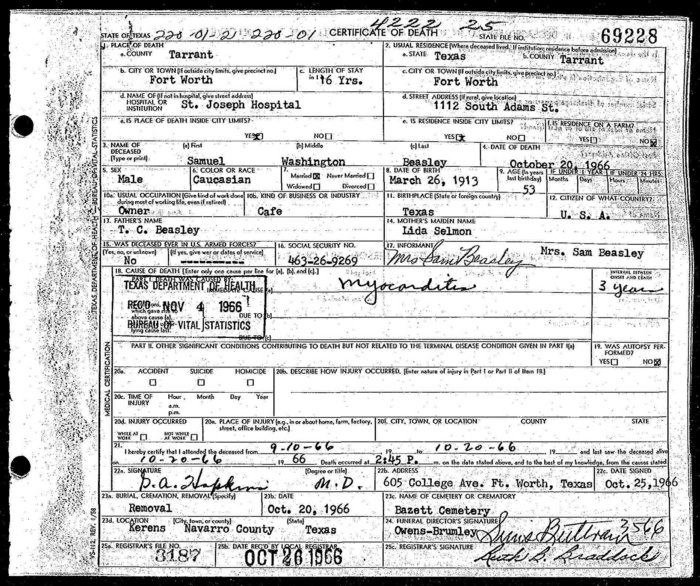 4222 25
STATE OF TEXAS 220-01-21 220-01 CERTIFICATE OF DEATH STATE FILE NO. 69228
1. PLACE OF DEATH
a. COUNTY Tarrant
2. USUAL RESIDENCE (Where deceased lived. If institution: residence before admission)
a. STATE Texas b. COUNTY Tarrant
b. CITY OR TOWN (If outside city limits, give precinct no.) Fort Worth
c. LENGTH OF STAY in 1b 16 Yrs.
c. CITY OR TOWN (If outside city limits, give precinct no.) Fort Worth
d. NAME OF (If not in hospital, give street address) HOSPITAL OR INSTITUTION St. Joseph Hospital
d. STREET ADDRESS (If rural, give location) 1112 South Adams St.
e. IS PLACE OF DEATH INSIDE CITY LIMITS?
YES☒ NO☐
e. IS RESIDENCE INSIDE CITY LIMITS?
YES☒ NO☐
f. IS RESIDENCE ON A FARM?
YES☐ NO☒
3. NAME OF DECEASED (Type or print) (a) First Samuel (b) Middle Washington (c) Last Beasley
4. DATE OF DEATH October 20, 1966
5. SEX Male
6. COLOR OR RACE Caucasian
7. Married☒ Never Married☐
Widowed☐ Divorced☐
8. DATE OF BIRTH March 26, 1913
9. AGE (In years last birthday) 53
IF UNDER 1 YEAR Months Days
IF UNDER 24 HRS. Hours Min.
10a. USUAL OCCUPATION (Give kind of work done during most of working life, even if retired) Owner
10b. KIND OF BUSINESS OR INDUSTRY Cafe
11. BIRTHPLACE (State or foreign country) Texas
12. CITIZEN OF WHAT COUNTRY? U. S. A.
13. FATHER'S NAME T. C. Beasley
14. MOTHER'S MAIDEN NAME Lida Selmon
15. WAS DECEASED EVER IN U.S. ARMED FORCES?
(Yes, no, or unknown) No
(If yes, give war or dates of service) ----------
16. SOCIAL SECURITY NO. 463-26-9269
17. INFORMANT Mrs Sam Beasley Mrs. Sam Beasley
18. CAUSE OF DEATH [Enter only one cause per line for (a), (b), and (c).]
INTERVAL BETWEEN ONSET AND DEATH
TEXAS DEPARTMENT OF HEALTH
Myocarditis 3 years
REC'D NOV 4 1966
which gave rise to above cause (a), DUE TO (b)
BUREAU OF VITAL STATISTICS
lying cause last. DUE TO (c)
PART II. OTHER SIGNIFICANT CONDITIONS CONTRIBUTING TO DEATH BUT NOT RELATED TO THE TERMINAL DISEASE CONDITION GIVEN IN PART I(a)
19. WAS AUTOPSY PERFORMED?
YES☐ NO☒
20a. ACCIDENT SUICIDE HOMICIDE
☐ ☐ ☐
20b. DESCRIBE HOW INJURY OCCURRED. (Enter nature of injury in Part I or Part II of Item 18.)
20c. TIME OF INJURY Hour Month Day Year
a.m.
p.m.
20d. INJURY OCCURRED
WHILE AT WORK ☐ NOT WHILE AT WORK ☐
20e. PLACE OF INJURY (e.g., in or about home, farm, factory, street, office building, etc.)
20f. CITY, TOWN, OR LOCATION COUNTY STATE
21. I hereby certify that I attended the deceased from 9-10-66 19 to 10-20-66 19 and last saw the deceased alive
on 10-20-66 19 66 Death occurred at 2:45 P. m. on the date stated above, and to the best of my knowledge, from the causes stated.
22a. SIGNATURE D.A. Hopkins (Degree or title) M.D.
22b. ADDRESS 605 College Ave. Ft. Worth, Texas
22c. DATE SIGNED Oct. 25, 1966
23a. BURIAL, CREMATION, REMOVAL (Specify) Removal
23b. DATE Oct. 20, 1966
23c. NAME OF CEMETERY OR CREMATORY Bazett Cemetery
23d. LOCATION (City, town, or county) (State) Kerens Navarro County Texas
24. FUNERAL DIRECTOR'S SIGNATURE Owens-Brumley 3566
25a. REGISTRAR'S FILE NO. 3187
25b. DATE REC'D BY LOCAL REGISTRAR OCT 26 1966
25c. REGISTRAR'S SIGNATURE Ruth S. Braddock
MEDICAL CERTIFICATION
VS-112, REV. 1/58